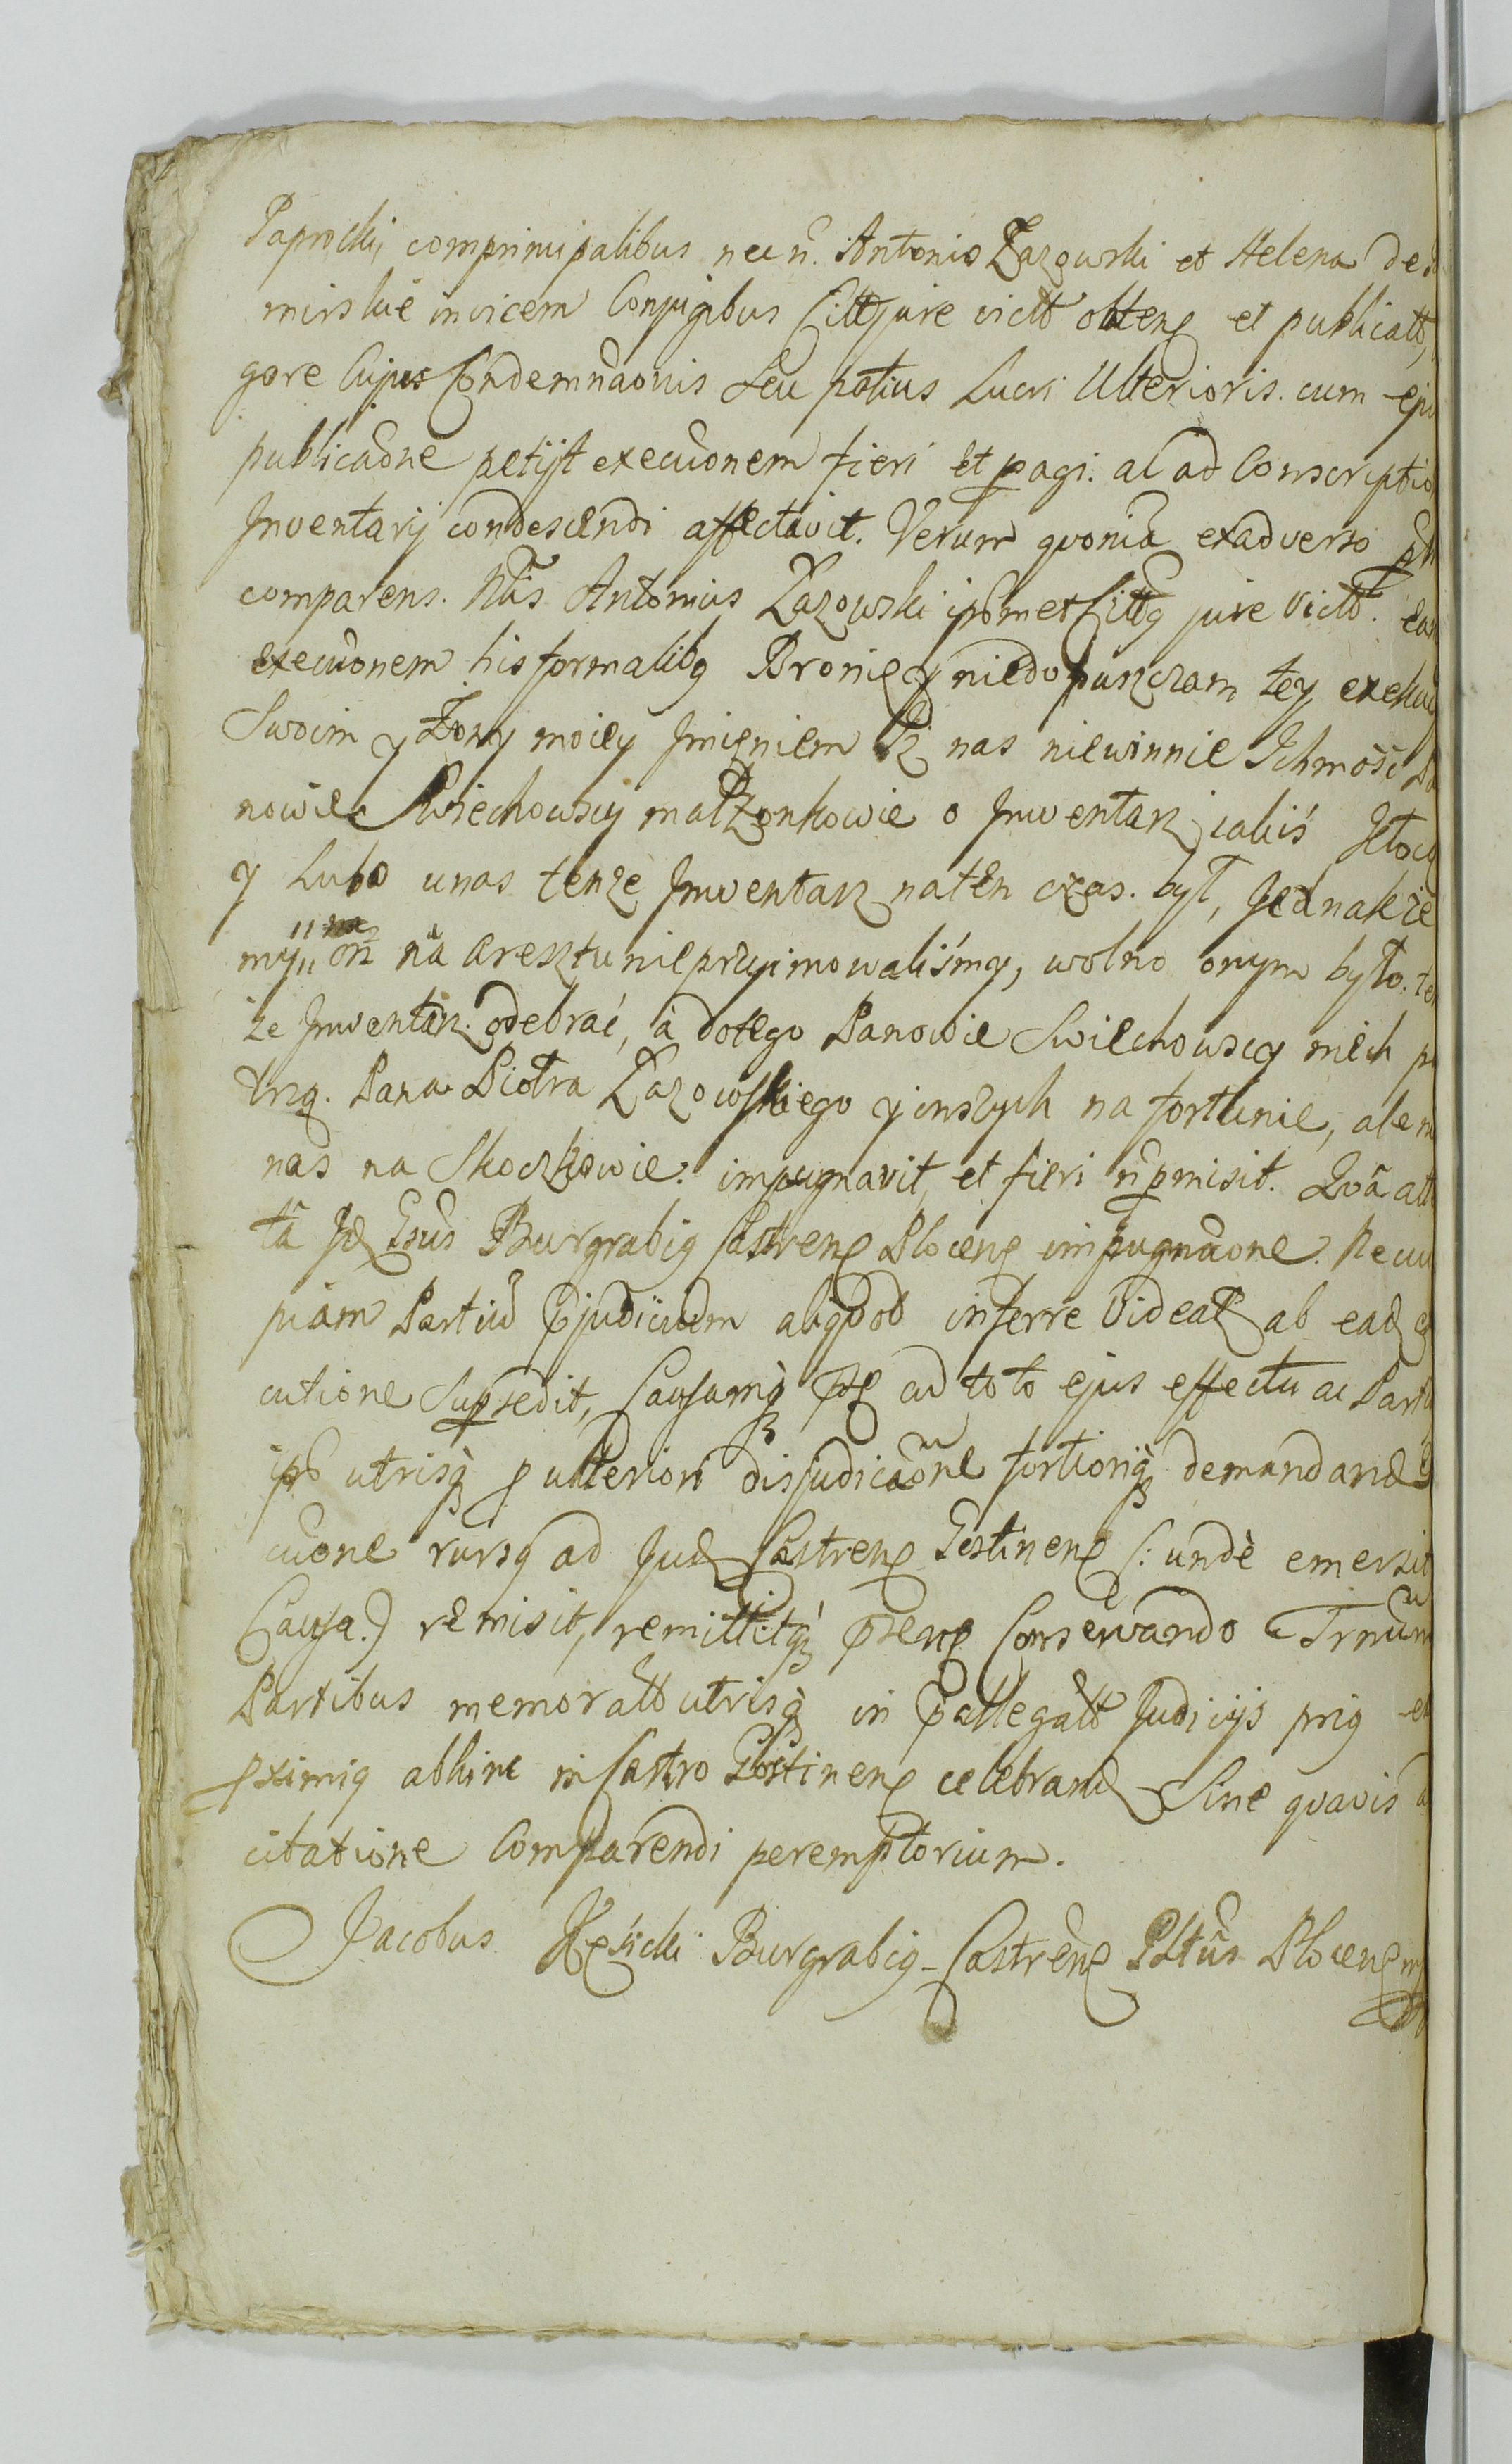 Paprocki comprincipalibus nec n. Antonio Łazowski et Helena de
mirskie invicem Conjugibus Citt jure victt obtenę et publicatt,
gore cujus Condemnaonis Seu potius Lucri Ulterioris. cum eju
publicaone petijt execuonem fieri et pagi. ac ad Conscriptio
Jnventarij condescendi affectavit. Verum qvoniã exadverso
comparens. Nlis Antonius Łazowski ipsmet Citt jure victt. ea
execuonem his formalibq Bronię y niedopuszczam tey exeku
Swoim y Żony moiey Jmięniem Jż nas niewinnie Ichmość Pa
nowie Swiechowscy małżonkowie o Jnwentarz jakiś
y Lubo unas tenże Jnwentarz naten czas. był, Jednakże
my na aresztu nieprzyimowaliśmy, wolno onym było. te
że Jnwentarz. odebrać, à dotego Panowie Swiechowscy niech
trzą. Pana Piotra Łazowskiego y inszych na fortunie, ale n
nas na Skoczkowie. impugnavit, et fieri n pmisit. Qvã att
tã Jd Gsus Burgrabiq Castrenę Plocenę impugnaone. Ne cu
piam Partiu pjudicium aliqvod inferre Videat ab ead
cutione Supsedit, Causamq pntę cu toto ejus effectu ac Parti
ipo utrisq p ulteriori disjudicaone fortioriq demandand
cuone rursq ad Jud Castrenę Gostinenę (: undè emersit
Causa.) remisit, remittitq pntę Conservando Trnum
Partibus memoratt utrisq in pallegatt Judicijs priq et
pximiq abhinc in Castro Gostinenę celebrand Sine qvavis a
citatione Comparendi peremptorium.
Jacobus Kęsicki Burgrabiq Castrenę Pltus Plocenę